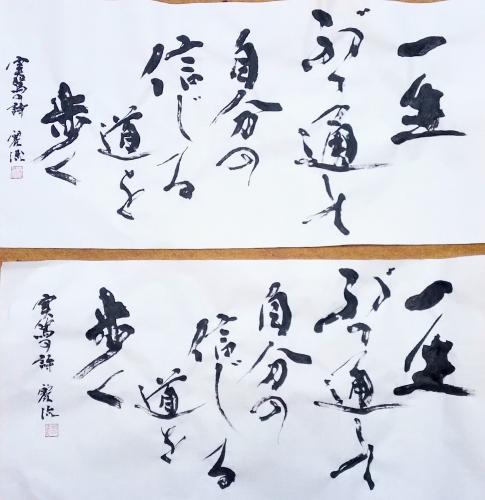 一生
ぶっ通して
自分の
信じる
道を
歩く
実篤の詩
一生
ぶっ通して
自分の
信じる
道を
歩く
実篤の詩